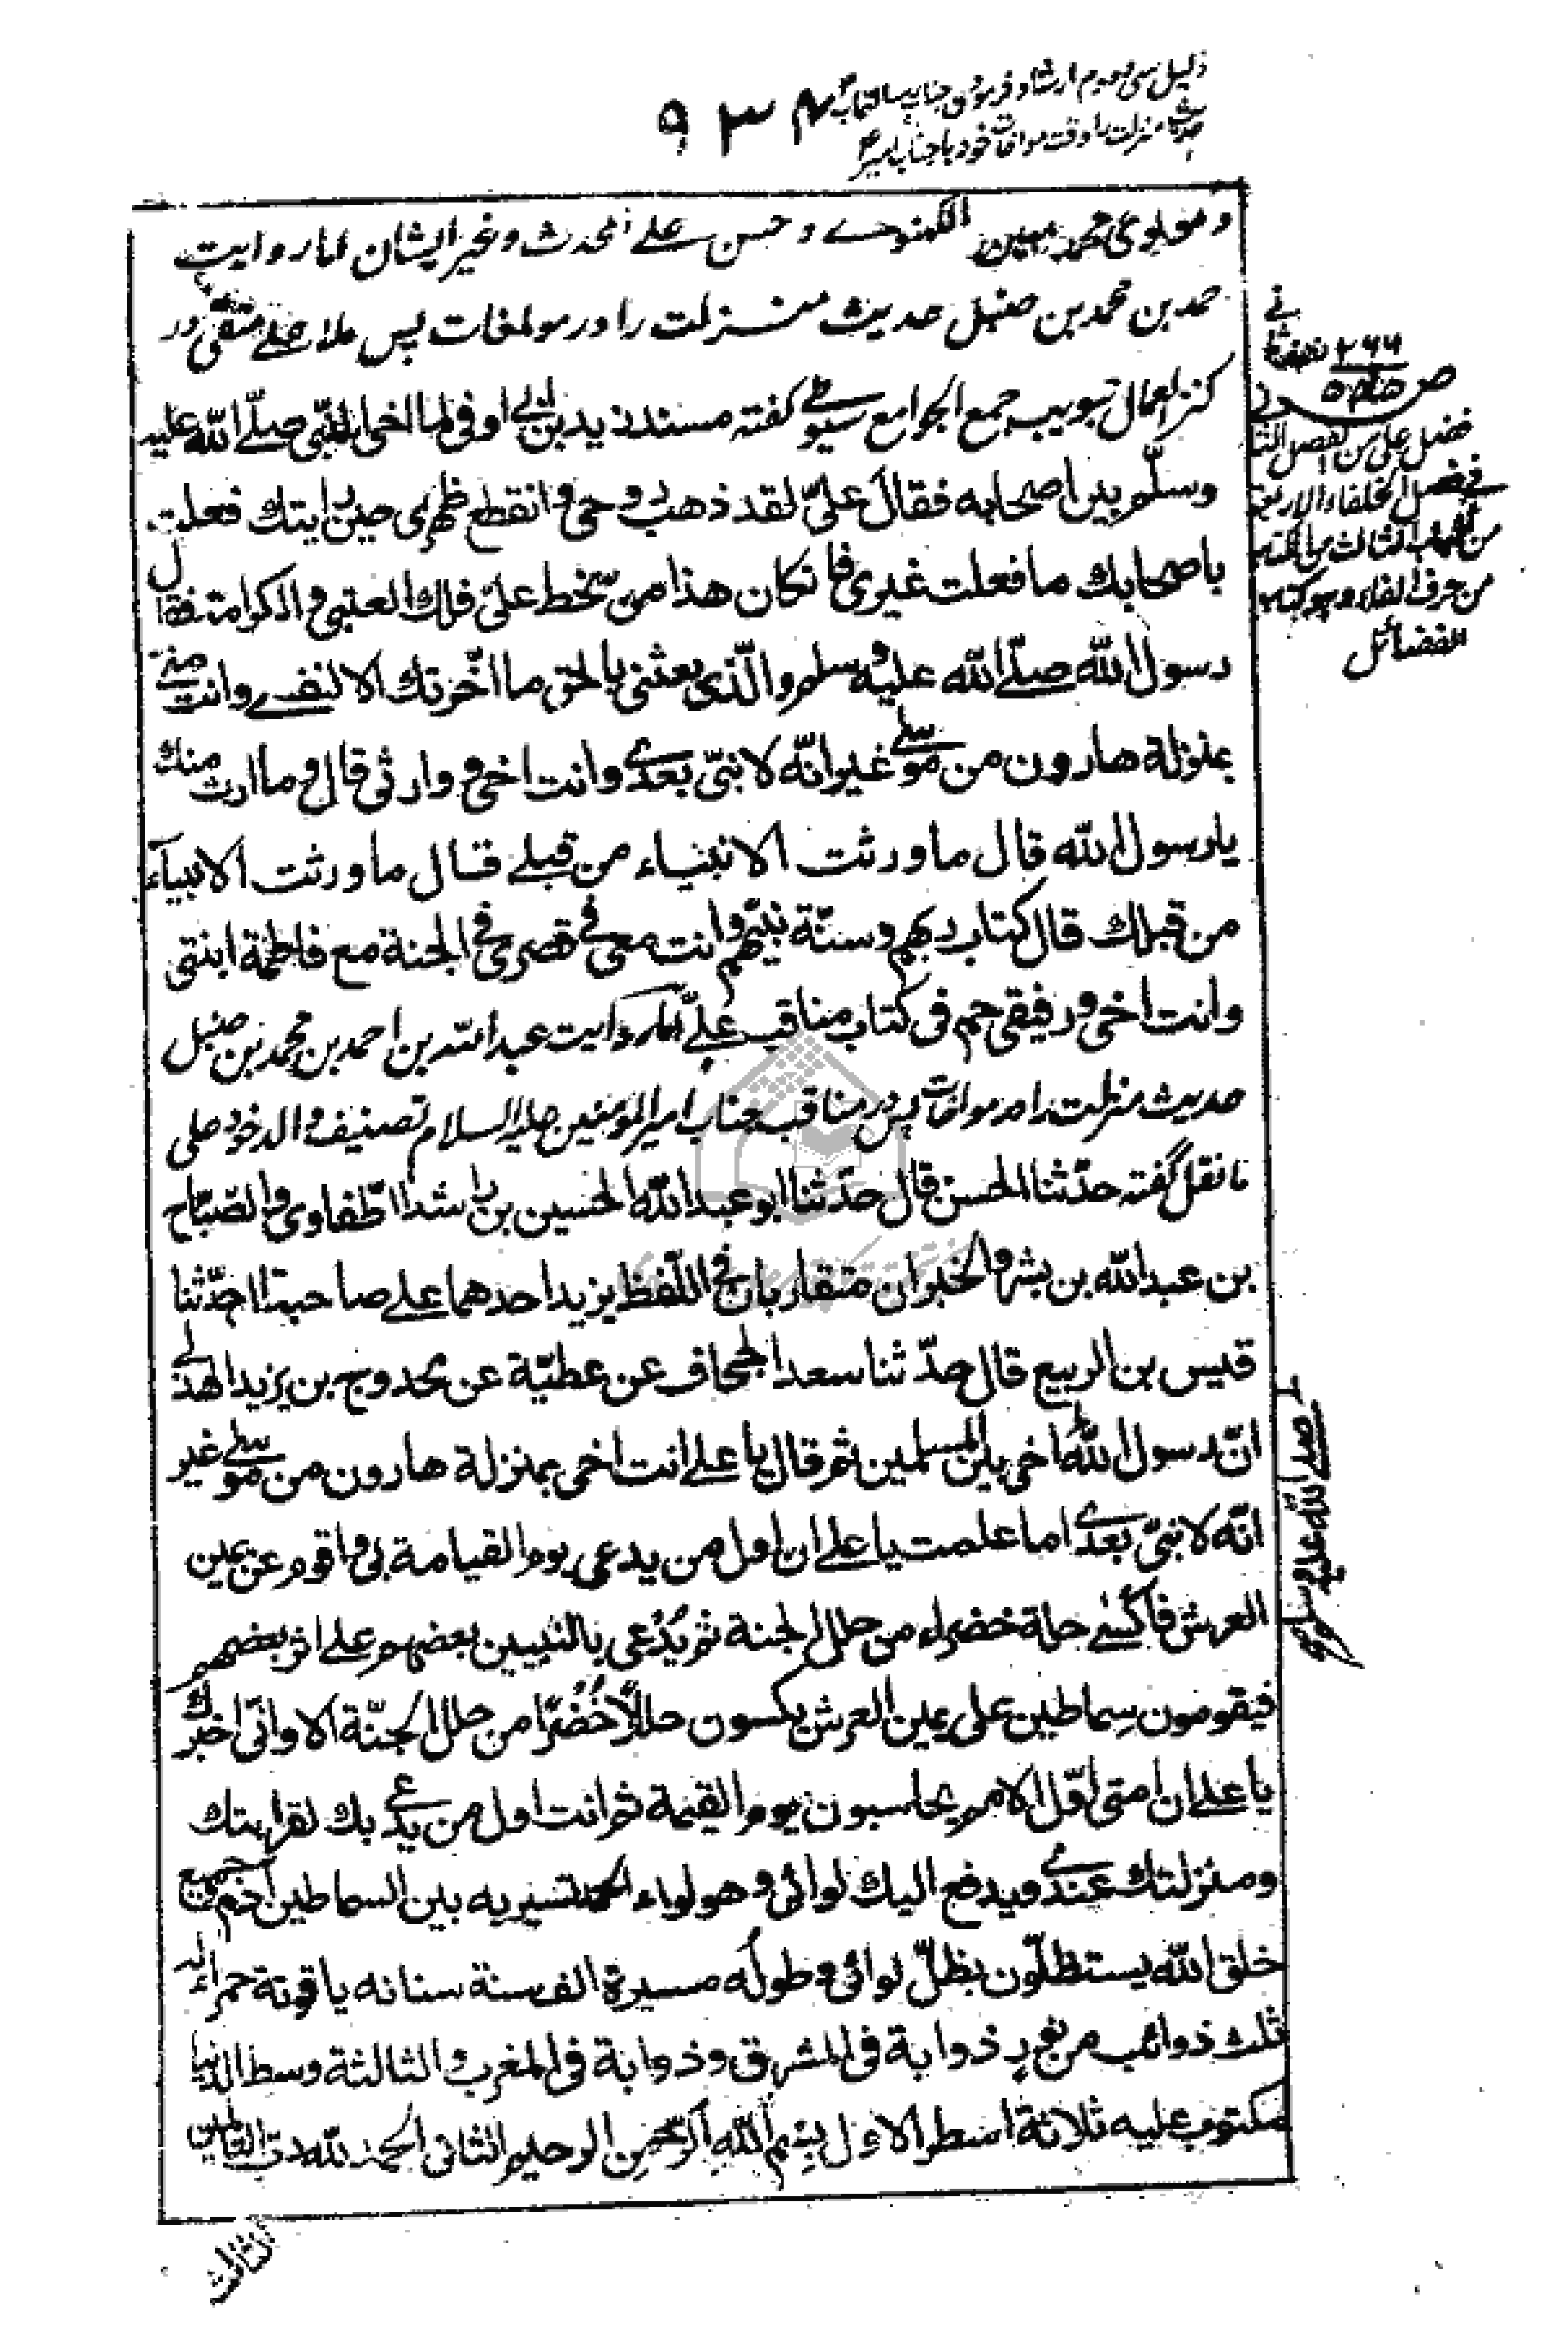 دلیل سی و دوم ارشاد فرمودن جناب رسالتمآب ۹۳۸
حدیث منزلت را وقت مواخات خود با جناب امیر ع
و مولوی محمد مبین اللکهنوے و حسن علے المحدث و غیر ایشان اما روایت
احمد بن محمد بن حنبل حدیث منزلت را در مواخات پس ملا علے متقی در
کنز العمال تبویب جمع الجوامع سیوطے گفته مسند زید بن ابی اوفی لما اخی النّبی صلّے اللّه علیه
وسلّم بین اصحابه فقال علیّ لقد ذهب روحی و انقطع ظهری حین رایتك فعلت
باصحابك ما فعلت غیری فانکان هذا من سخط علیّ فلك العتبی و الکرامة فقال
رسول اللّه صلّے اللّه علیه وسلم والّذی بعثنی بالحق ما اخّرتك الا لنفسے وانت منّے
بمنزلة هارون من موسٰے غیر انّه لا نبیّ بعدے وانت اخی و وارثی قال و ما ارث منك
یا رسول اللّه قال ما ورثت الانبیاء من قبلے قال ما ورثت الانبیآء
من قبلك قال کتاب ربهم وسنّة نبیّهم وانت معی فی قصری فی الجنة مع فاطمة ابنتی
وانت اخی و رفیقی حم فی کتاب مناقب علیّ اما روایت عبد اللّه بن احمد بن محمد بن حنبل
حدیث منزلت را در مواخات پس در مناقب جناب امیر المؤمنین علیه السلام تصنیف والد خود علی
ما نقل گفته حدّثنا الحسن قال حدّثنا ابو عبد اللّه الحسین بن راشد الطّفاوی والصّبّاح
بن عبد اللّه بن بشر والخبران متقاربان فی اللّفظ یزید احدهما علے صاحبه قالا حدّثنا
قیس بن الربیع قال حدّثنا سعد الجحاف عن عطیّة عن محدوج بن یزید الهذلے
انّ رسول اللّه اخی بین المسلمین ثم قال یا علے انت اخی بمنزلة هارون من موسٰے غیر
انّه لا نبیّ بعدے اما علمت یا علے ان اول من یدعی یوم القیامة بی فاقوم عن یمین
العرش فاُکسٰے حلة خضراء من حلل الجنة ثم یُدْعی بالنبیین بعضهم علے اثر بعضهم
فیقومون سماطین علی یمین العرش یکسون حللًا خُضُرًا من حلل الجنّة الا وانّی اخبرك
یا علے ان امتی اوّل الامم یحاسبون یوم القیمة ثم انت اول من یدعٰے بك لقرابتك
ومنزلتك عندے ویدفع الیك لوائی وهو لواء الحمد تسیر به بین السماطین آدم و جمیع
خلق اللّه یستظلّون بظلّ لوائی و طوله مسیرة الف سنة سنانه یاقوتة حمراء له
ثلث ذوائب من نور ذوابة فی المشرق وذوابة فی المغرب و الثالثة وسط الدنیا
مکتوب علیه ثلاثة اسطر الاول بِسْمِ اللّهِ الرَّحْمنِ الرحیم الثانی الحمد للّه ربّ العالمین
الثالث
فضل علی من الفصل الثا
فی فضل الخلفاء الاربعة
من الباب الثالث من الکتب
من حرف الفاء وهو کتاب
الفضائل
صلے اللّه علیه وسلم